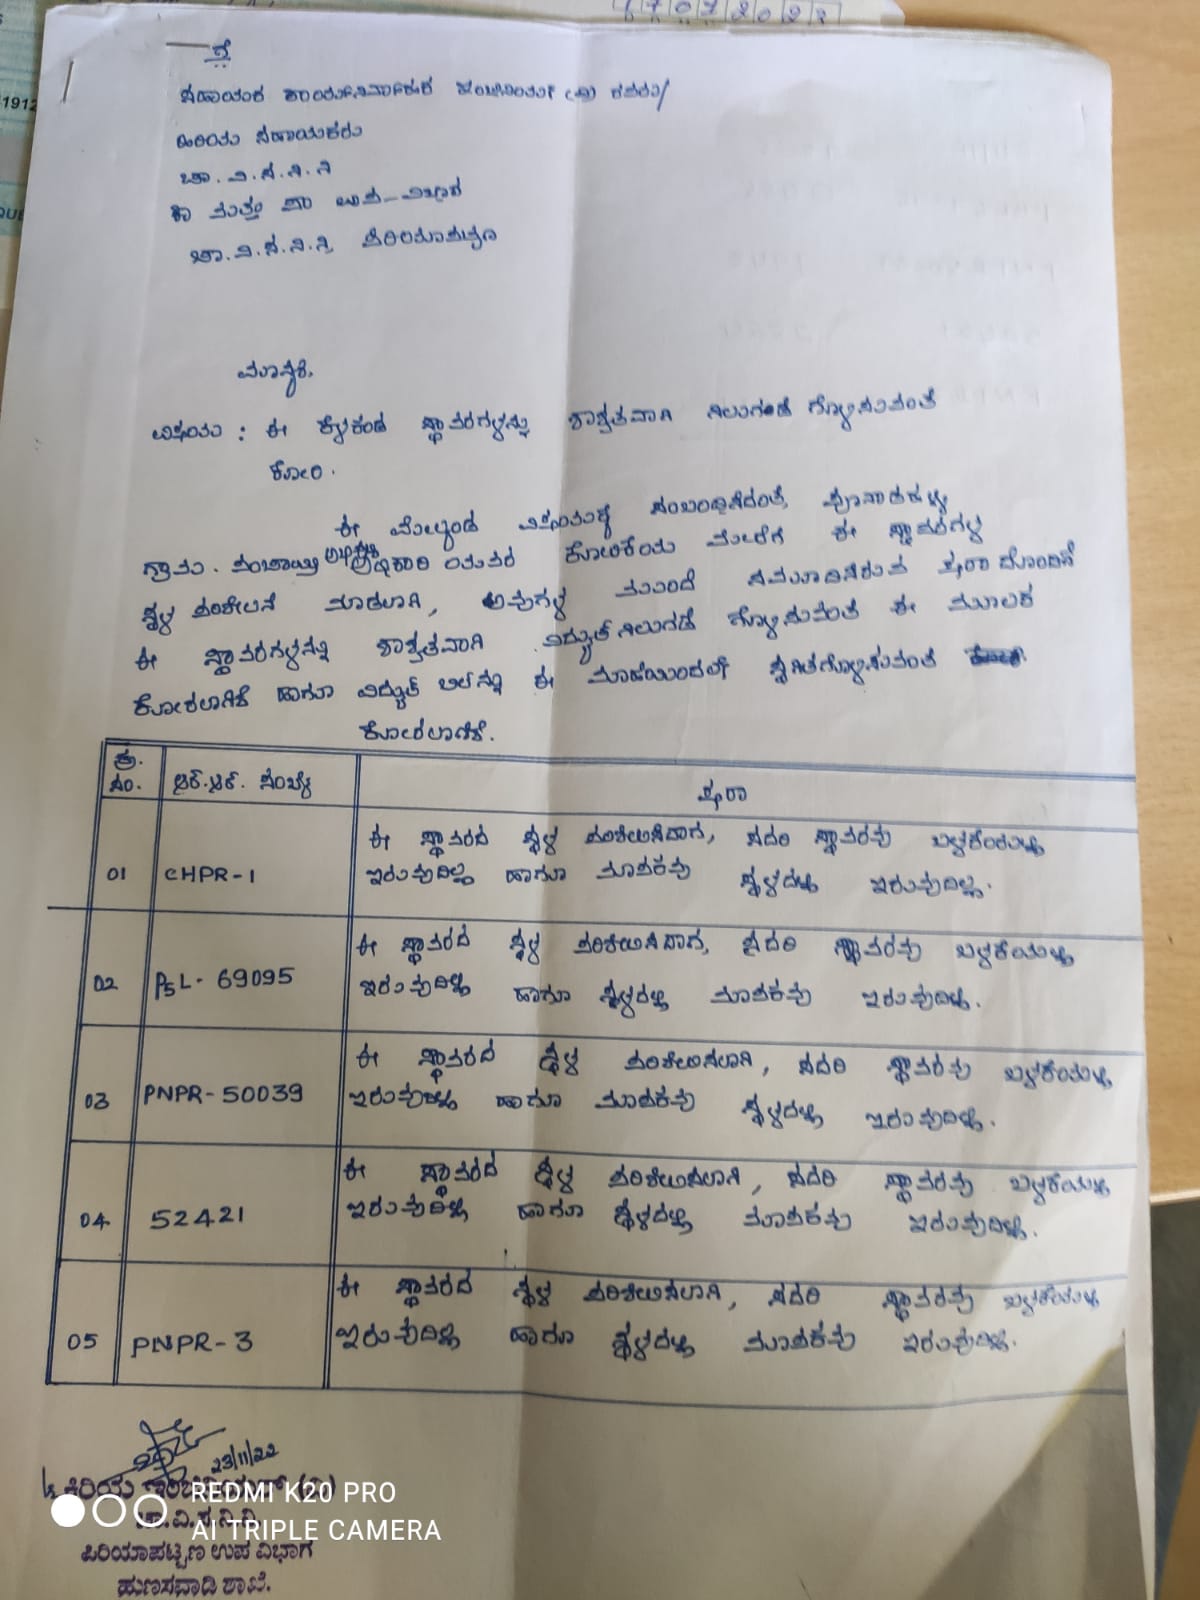 1912
ರೆ
ಸಹಾಯಕ ಕಾರ್ಯನಿರ್ವಾಹಕ ಇಂಜಿನಿಯರ್ (ವಿ) ರವರು/
ಹಿರಿಯ ಸಹಾಯಕರು
ಚಾ.ವಿ.ಸ.ನಿ.ನಿ
ಕಾ ಮತ್ತು ಪಾ ಉಪ-ವಿಭಾಗ
ಚಾ.ವಿ.ಸ.ನಿ.ನಿ, ಪಿರಿಯಾಪಟ್ಟಣ
ಮಾನ್ಯರೆ,
ವಿಷಯ : ಈ ಕೆಳಕಂಡ ಸ್ಥಾವರಗಳನ್ನು ಶಾಶ್ವತವಾಗಿ ನಿಲುಗಡೆ ಗೊಳಿಸುವಂತೆ
ಕೋರಿ.
ಈ ಮೇಲ್ಕಂಡ ವಿಷಯಕ್ಕೆ ಸಂಬಂಧಿಸಿದಂತೆ,
ಗ್ರಾಮ. ಪಂಚಾಯ್ತಿ ಅಭಿವೃದ್ಧಿ ಅಧಿಕಾರಿ ಯವರ ಕೋರಿಕೆಯ ಮೇರೆಗೆ ಈ ಸ್ಥಾವರಗಳ
ಸ್ಥಳ ಪರಿಶೀಲನೆ ಮಾಡಲಾಗಿ, ಅವುಗಳ ಮುಂದೆ ನಮೂದಿಸಿರುವ ಷರಾ ದೊಂದಿಗೆ
ಈ ಸ್ಥಾವರಗಳನ್ನು ಶಾಶ್ವತವಾಗಿ ವಿದ್ಯುತ್ ನಿಲುಗಡೆ ಗೊಳಿಸುವಂತೆ ಈ ಮೂಲಕ
ಕೋರಲಾಗಿದೆ ಹಾಗೂ ವಿದ್ಯುತ್ ಬಿಲ್‌ನ್ನೂ ಈ ಮಾಹೆಯಿಂದಲೇ ಸ್ಥಗಿತಗೊಳಿಸುವಂತೆ
ಕೋರಲಾಗಿದೆ.
ಕ್ರ. ಸಂ. ಆರ್.ಆರ್. ಸಂಖ್ಯೆ ಷರಾ
01 CHPR-1 ಈ ಸ್ಥಾವರದ ಸ್ಥಳ ಪರಿಶೀಲಿಸಿದಾಗ, ಸದರಿ ಸ್ಥಾವರವು ಬಳಕೆಯಲ್ಲಿ
ಇರುವುದಿಲ್ಲ ಹಾಗೂ ಮಾಪಕವು ಸ್ಥಳದಲ್ಲಿ ಇರುವುದಿಲ್ಲ.
02 PSL-69095 ಈ ಸ್ಥಾವರದ ಸ್ಥಳ ಪರಿಶೀಲಿಸಿದಾಗ, ಸದರಿ ಸ್ಥಾವರವು ಬಳಕೆಯಲ್ಲಿ
ಇರುವುದಿಲ್ಲ ಹಾಗೂ ಸ್ಥಳದಲ್ಲಿ ಮಾಪಕವು ಇರುವುದಿಲ್ಲ.
03 PNPR-50039 ಈ ಸ್ಥಾವರದ ಸ್ಥಳ ಪರಿಶೀಲಿಸಲಾಗಿ, ಸದರಿ ಸ್ಥಾವರವು ಬಳಕೆಯಲ್ಲಿ
ಇರುವುದಿಲ್ಲ ಹಾಗೂ ಮಾಪಕವು ಸ್ಥಳದಲ್ಲಿ ಇರುವುದಿಲ್ಲ.
04 52421 ಈ ಸ್ಥಾವರದ ಸ್ಥಳ ಪರಿಶೀಲಿಸಲಾಗಿ, ಸದರಿ ಸ್ಥಾವರವು ಬಳಕೆಯಲ್ಲಿ
ಇರುವುದಿಲ್ಲ ಹಾಗೂ ಸ್ಥಳದಲ್ಲಿ ಮಾಪಕವು ಇರುವುದಿಲ್ಲ.
05 PNPR-3 ಈ ಸ್ಥಾವರದ ಸ್ಥಳ ಪರಿಶೀಲಿಸಲಾಗಿ, ಸದರಿ ಸ್ಥಾವರವು ಬಳಕೆಯಲ್ಲಿ
ಇರುವುದಿಲ್ಲ ಹಾಗೂ ಸ್ಥಳದಲ್ಲಿ ಮಾಪಕವು ಇರುವುದಿಲ್ಲ.
23/11/22
ಕಿರಿಯ ಇಂಜಿನಿಯರ್ (ವಿ)
ಚಾ.ವಿ.ಸ.ನಿ.ನಿ.
ಪಿರಿಯಾಪಟ್ಟಣ ಉಪ ವಿಭಾಗ
ಹುಣಸವಾಡಿ ಶಾಖೆ.
REDMI K20 PRO
AI TRIPLE CAMERA